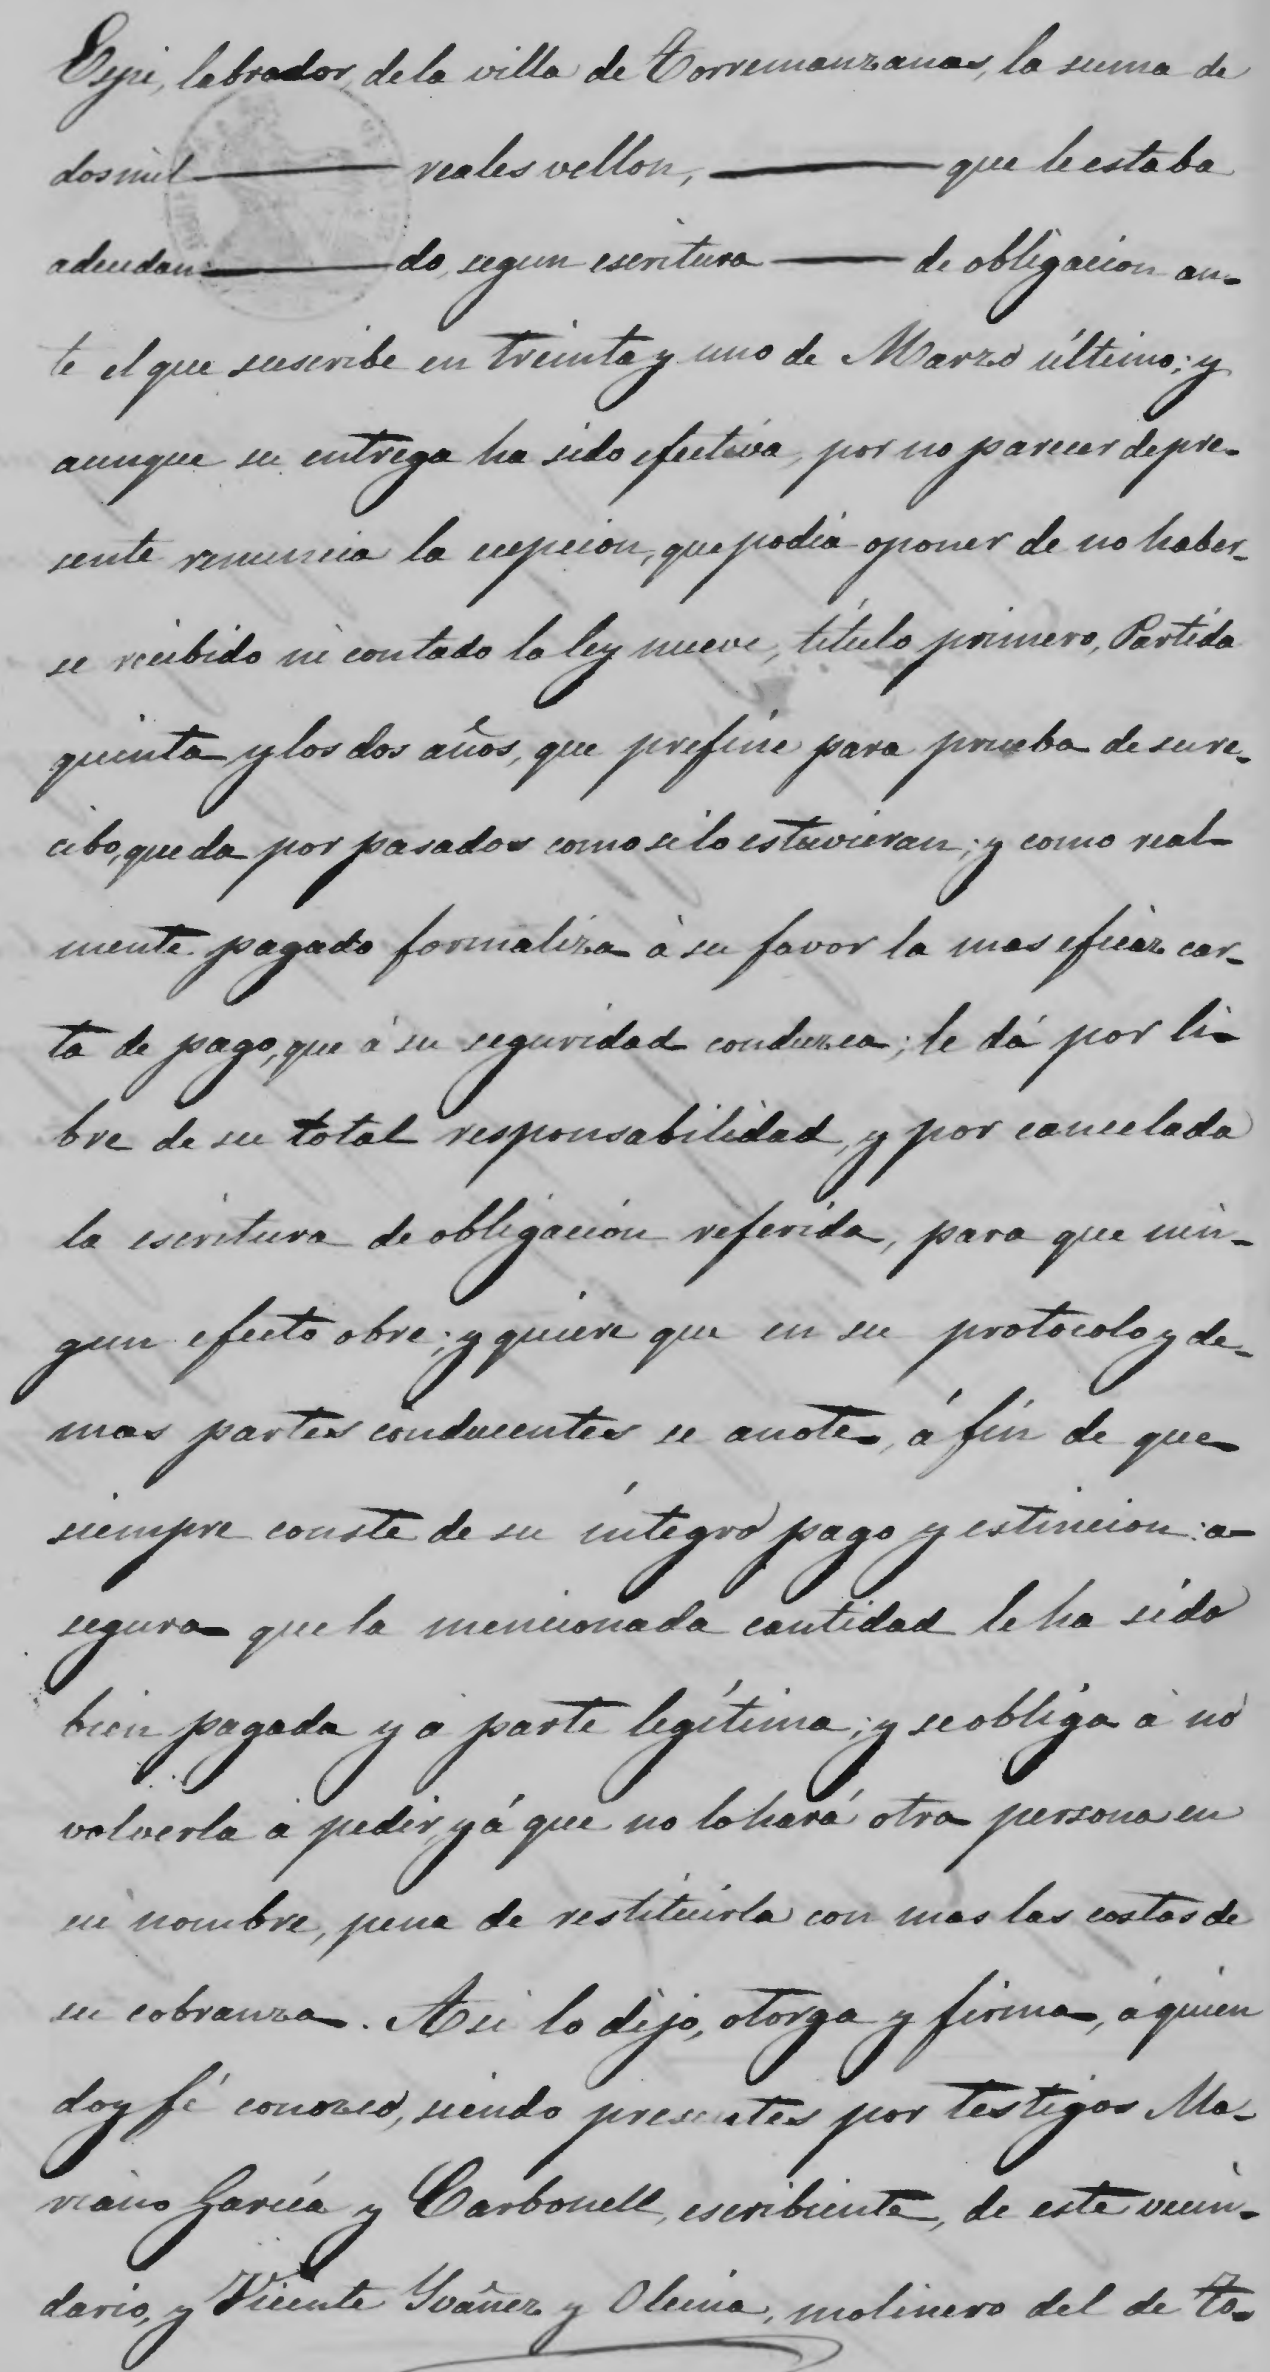 Espi, labrador, de la villa de Torremanzanas, la suma de
dos mil —— reales vellon, —— que le estaba
adeudan —— do, segun escritura —— de obligacion an-
te el que suscribe en treinta y uno de Marzo último; y
aunque su entrega ha sido efectiva, por no parecer de pre-
sente renuncia la cepcion, que podia oponer de no haber-
se recibido ni contado la ley nueve, título primero, Partida
quinta y los dos años, que prefine para prueba de su re-
cibo, que da por pasados como si lo estuvieran; y como real-
mente pagado formaliza á su favor la mas eficaz car-
ta de pago, que á su seguridad conduzca; le dá por li-
bre de su total responsabilidad, y por cancelada
la escritura de obligacion referida, para que nin-
gun efecto obre; y quiere que en su protocolo y de-
mas partes conducentes se anote, á fin de que
siempre conste de su íntegro pago y estincion: a-
segura que la mencionada cantidad le ha sido
bien pagada y a parte legítima; y se obliga á no
volverla a pedir, y á que no lo hará otra persona en
su nombre, pena de restituirla con mas las costas de
su cobranza. Asi lo dijo, otorga y firma, á quien
doy fé conozco, siendo presentes por testigos Ma-
riano García y Carbonell, escribiente, de este vecin-
dario, y Vicente Yváñez y Olcina, molinero del de To-